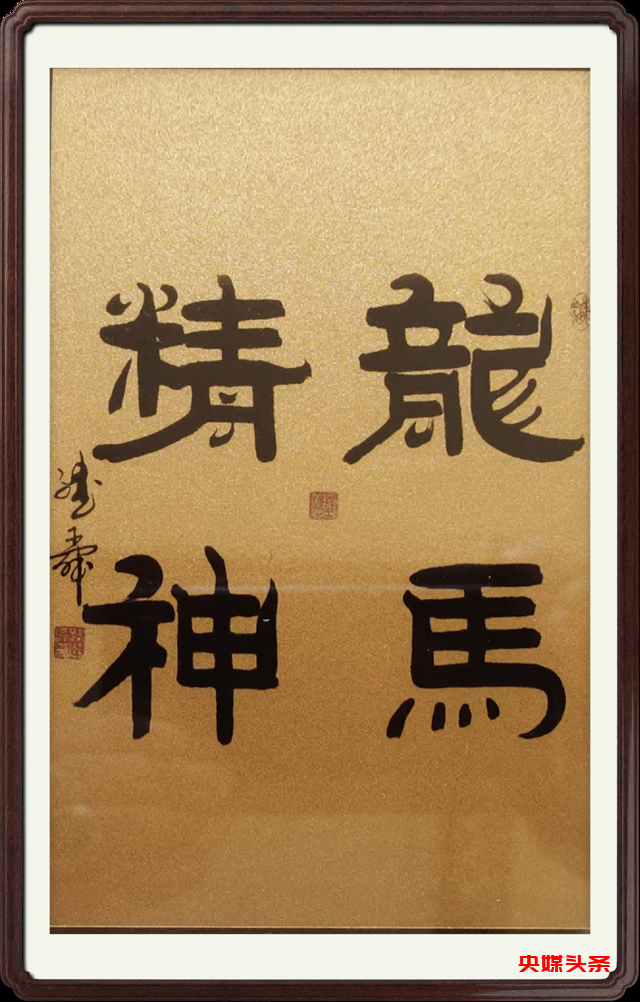 龍馬
精神
央媒头条